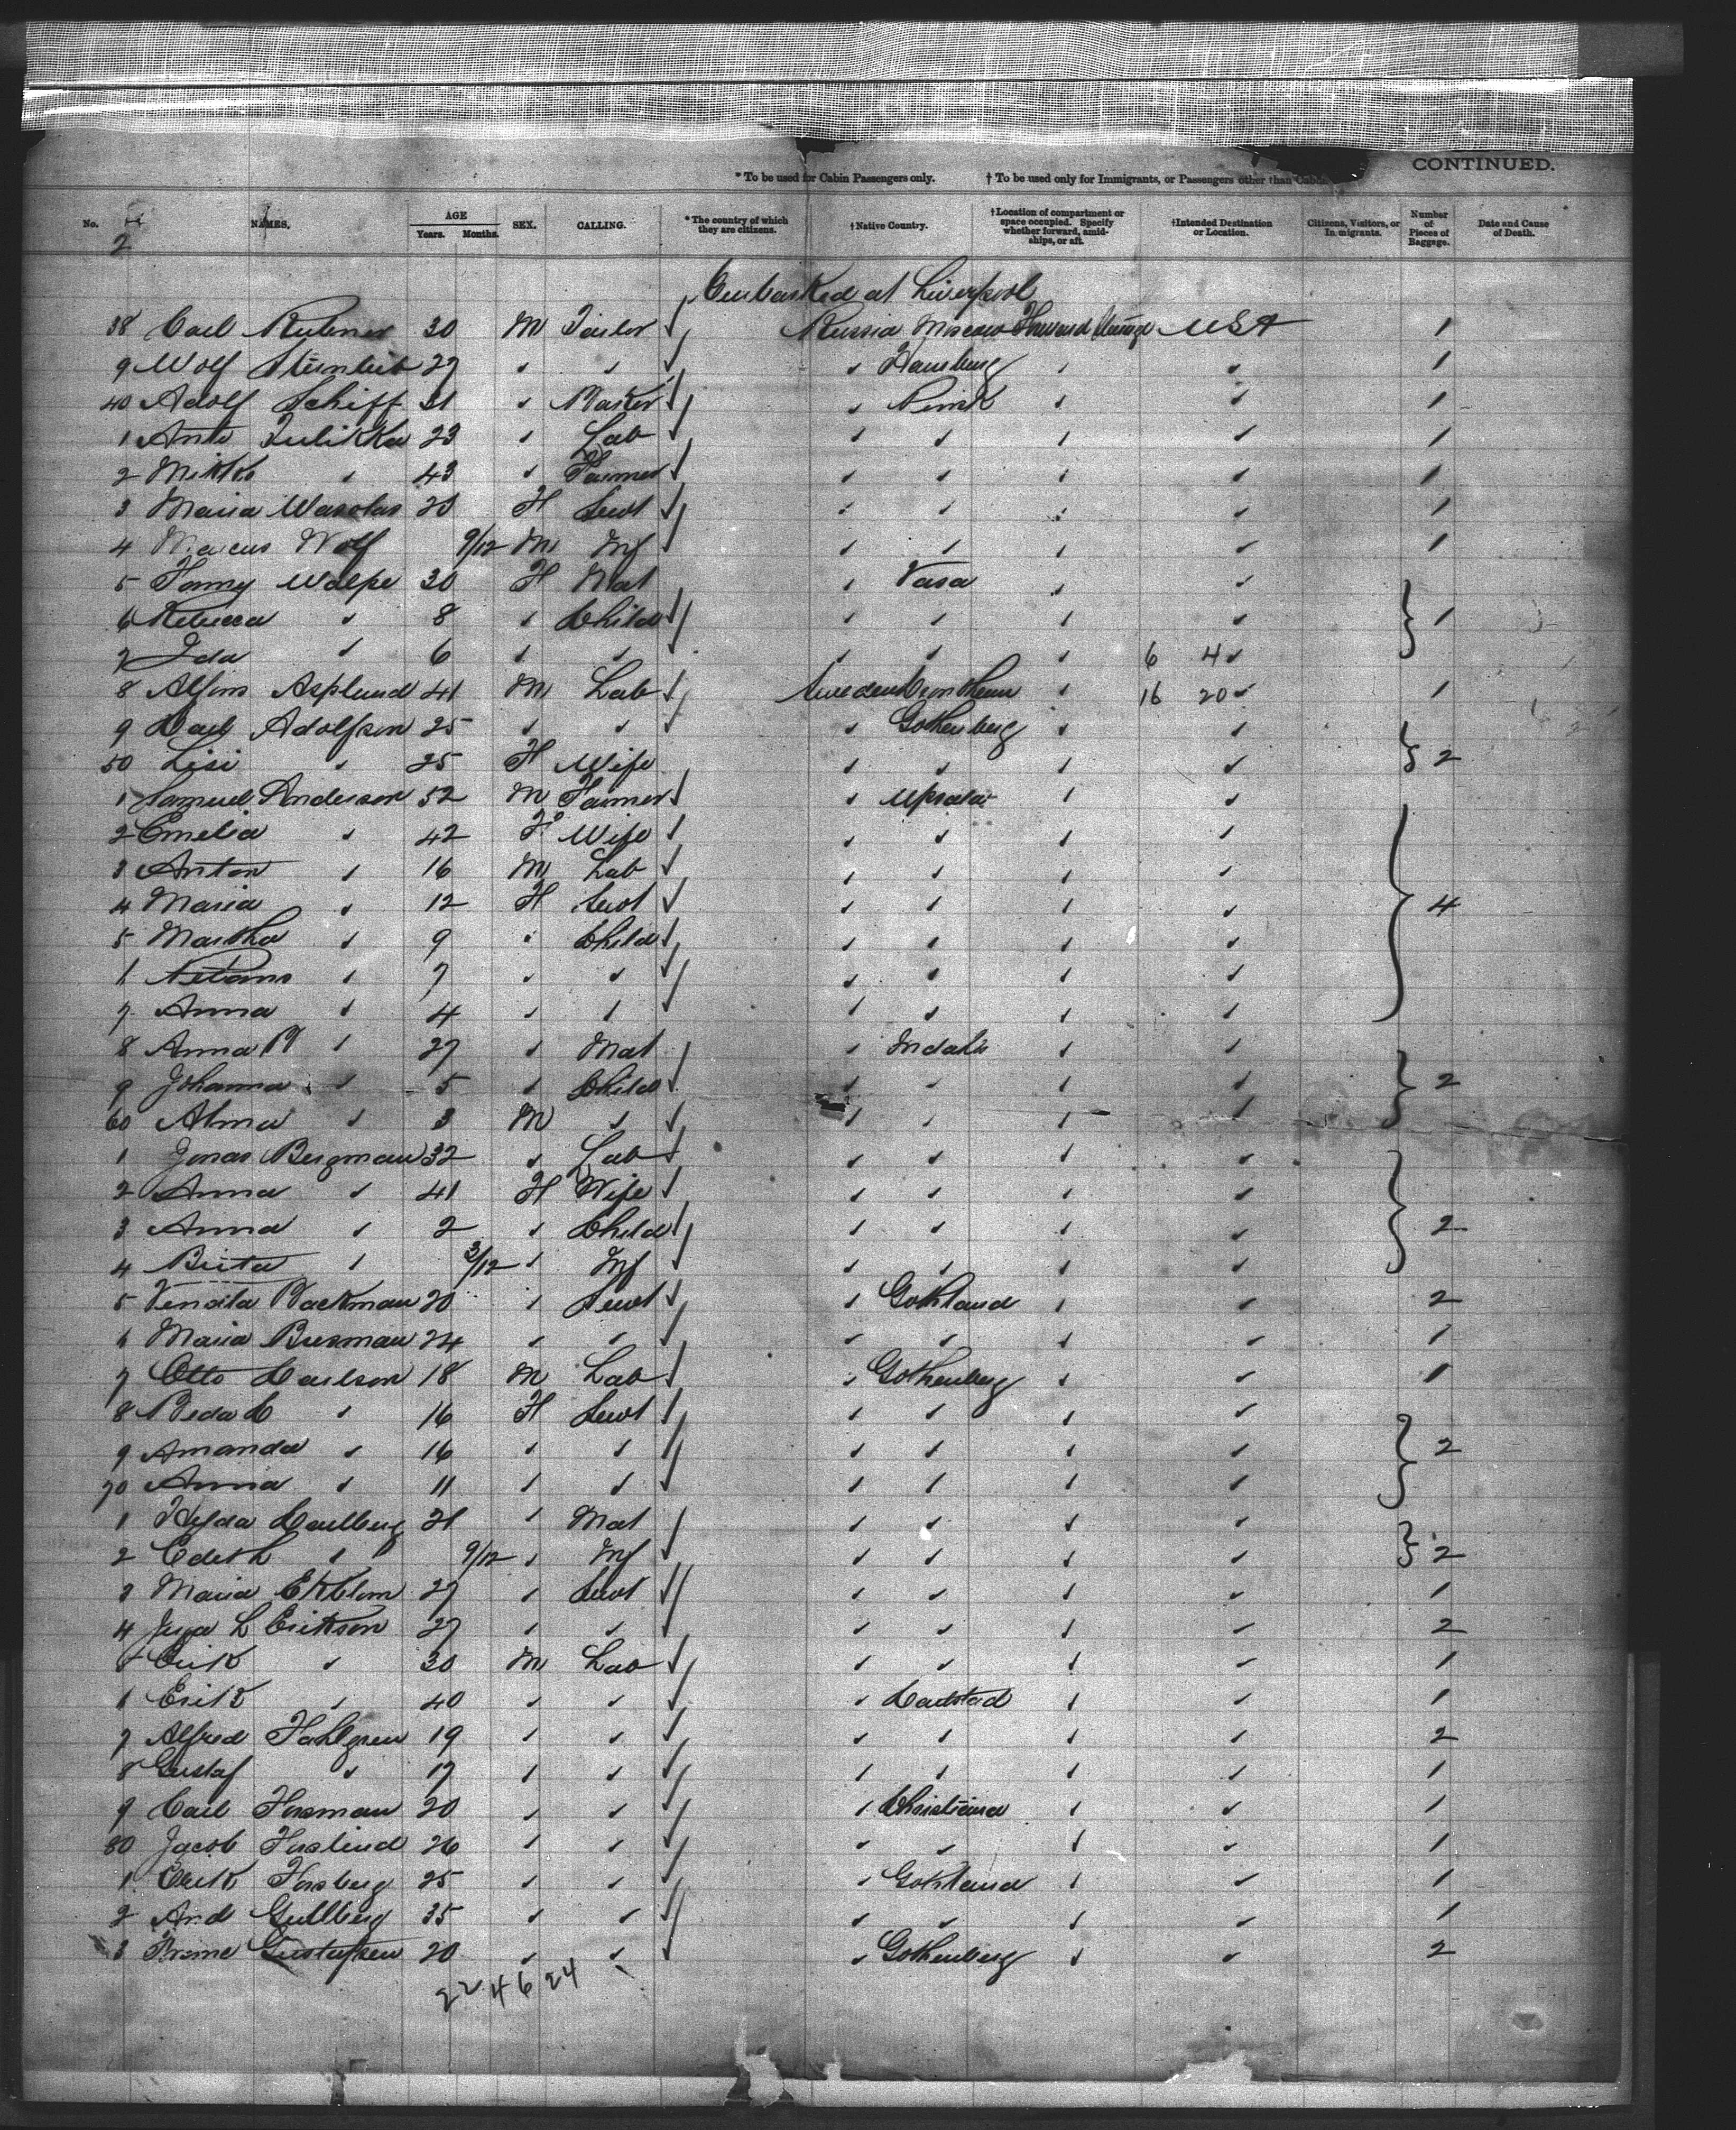 CONTINUED.
* To be used for Cabin Passengers only. † To be used only for Immigrants, or Passengers other than Cabin.
No. NAMES. AGE Years. Months. SEX. CALLING. * The country of which they are citizens. † Native Country. † Location of compartment or space occupied. Specify whether forward, amidships, or aft. † Intended Destination or Location. Citizens, Visitors, or Immigrants. Number of Pieces of Baggage. Date and Cause of Death.
2
Embarked at Liverpool
38 Carl 30 M Tailor Russia Moscow Forward USA 1
9 Wolf 27 " " " " " 1
40 Adolf Schiff 31 " " Pinsk " " 1
1 Anti Tulikka 23 " Lab " " " " 1
2 Mikko " 43 " Farmer " " " " 1
3 Maria 20 F Servt " " " " 1
4 Marcus Wolf 9/12 M Inf " " " " 1
5 Fanny Wolpe 30 F Mat " Vasa " "
6 Rebecca " 8 " Child " " " " 1
7 Ida " 6 " " " " " 6 4 "
8 Asplund 41 M Lab Sweden " 16 20 " 1
9 Adolfson 25 " " " Gothenberg " "
50 Lisi " 25 F Wife " " " " 2
1 Samuel Anderson 52 M Farmer " Upsala " "
2 Emelia " 42 F Wife " " " "
3 Anton " 16 M Lab " " " "
4 Maria " 12 F Servt " " " " 4
5 Martha " 9 " Child " " " "
6 " 7 " " " " " "
7 Anna " 4 " " " " " "
8 Anna " 27 " Mat " " "
9 Johanna " 5 " Child " " " " 2
60 Alma " 3 M " " " " "
1 Jonas Bergman 32 " Lab " " " "
2 Anna " 41 F Wife " " " "
3 Anna " 2 " Child " " " " 2
4 Brita " 3/12 " Inf " " " "
5 Backman 20 " Servt " Gothland " " 2
6 Maria 24 " " " " " " 1
7 Otto Carlson 18 M Lab " Gothenberg " " 1
8 Beda C " 16 F Servt " " " "
9 Amanda " 16 " " " " " " 2
70 Anna " 11 " " " " " "
1 Carlberg 21 " Mat " " " "
2 Edith " 9/12 " Inf " " " " 2
3 Maria Ekblom 27 " Servt " " " " 1
4 L Erikson 27 " " " " " " 2
5 Erik " 30 M Lab " " " " 1
6 Erik " 40 " " " Carlstad " " 1
7 Alfred Fahlgren 19 " " " " " " 2
8 Gustaf " 17 " " " " " " 1
9 Carl Forsman 20 " " " Christiana " " 1
80 Jacob Forslind 26 " " " " " " 1
1 Erik Forsberg 25 " " " Gothland " " 1
2 And Gullberg 35 " " " " " " 1
3 Gustafson 20 " " " Gothenberg " " 2
22 4 6 24